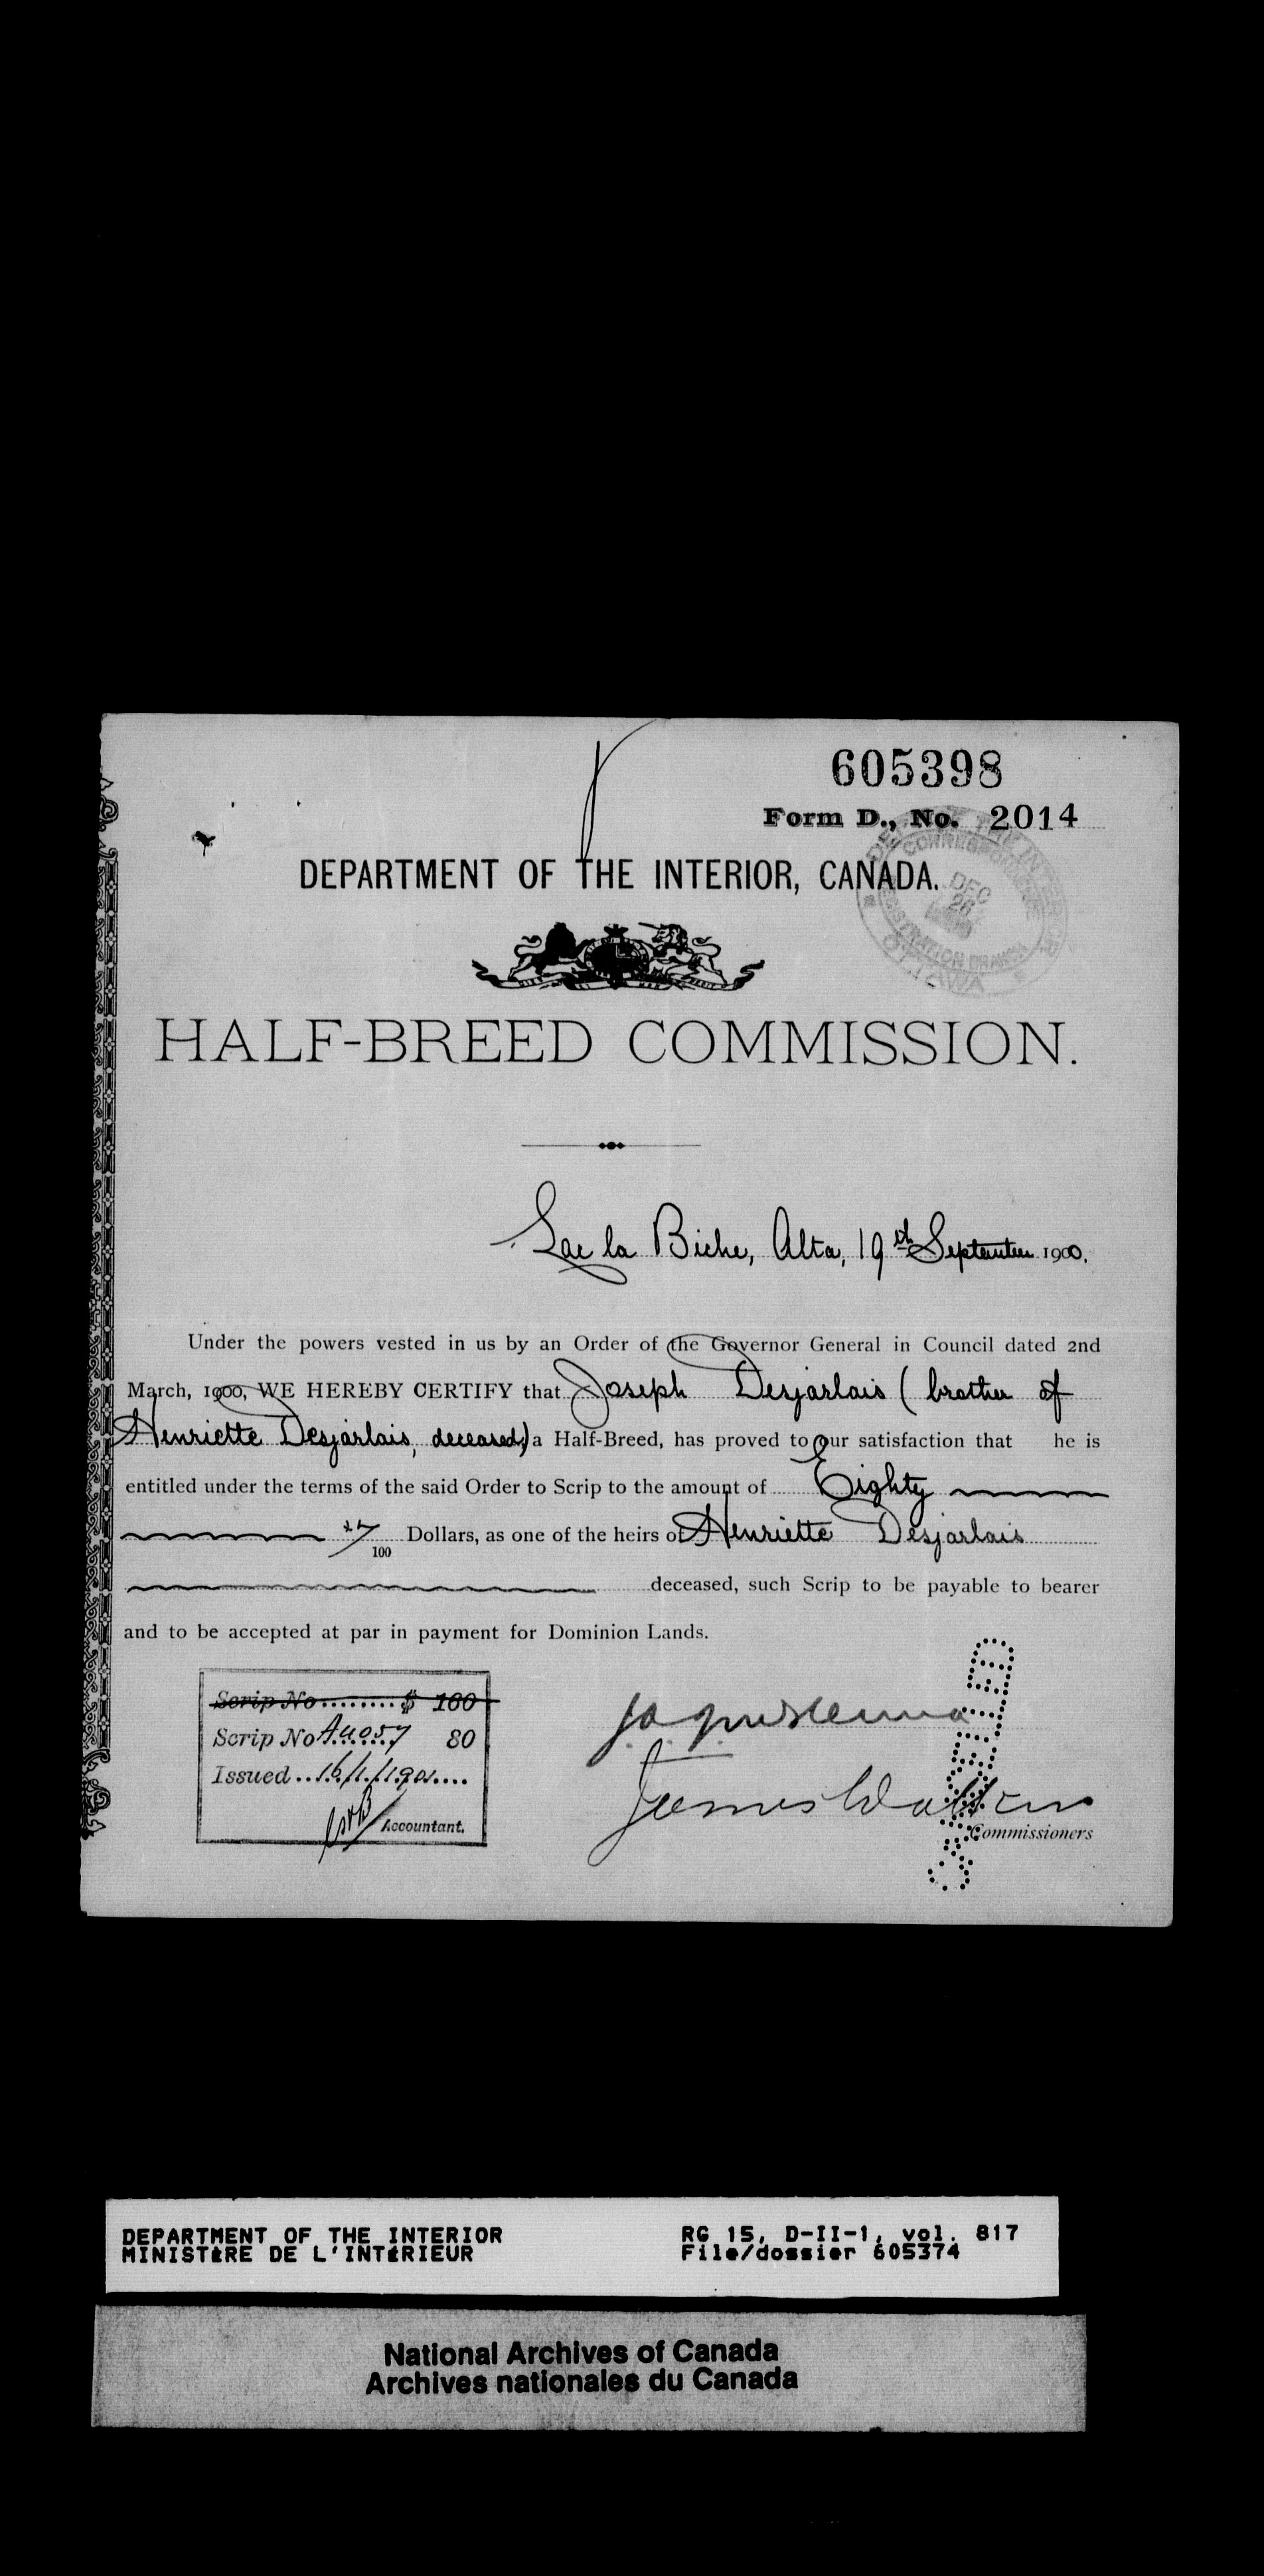 605398
Form D., No. 2014
DEPARTMENT OF THE INTERIOR, CANADA.
DEC
26
OTTAWA
HALF-BREED COMMISSION.
Lac la Biche, Alta, 19th September 1900.
Under the powers vested in us by an Order of the Governor General in Council dated 2nd
March, 1900, WE HEREBY CERTIFY that Joseph Desjarlais (brother of
Henriette Desjarlais, deceased,) a Half-Breed, has proved to our satisfaction that he is
entitled under the terms of the said Order to Scrip to the amount of Eighty
xx/100 Dollars, as one of the heirs of Henriette Desjarlais
deceased, such Scrip to be payable to bearer
and to be accepted at par in payment for Dominion Lands.
Scrip No ........ $ 160
Scrip No A4057 80
Issued .. 16/1/1901....
Accountant.
James Walker
Commissioners
DEPARTMENT OF THE INTERIOR
MINISTÈRE DE L'INTÉRIEUR
RG 15, D-II-1, vol. 817
File/dossier 605374
National Archives of Canada
Archives nationales du Canada